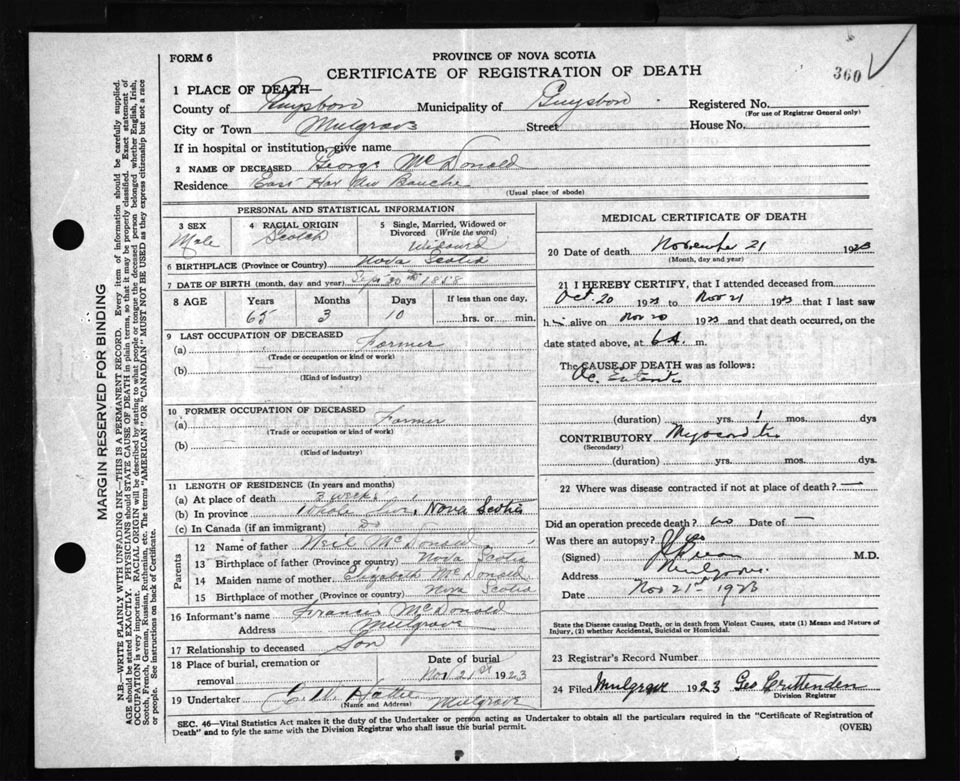 360
FORM 6
PROVINCE OF NOVA SCOTIA
CERTIFICATE OF REGISTRATION OF DEATH
1 PLACE OF DEATH—
County of Guysboro Municipality of Guysboro Registered No.
(For use of Registrar General only)
City or Town Mulgrave Street House No.
If in hospital or institution, give name
2 NAME OF DECEASED George McDonald
Residence East Har Bouche
(Usual place of abode)
PERSONAL AND STATISTICAL INFORMATION
3 SEX Male
4 RACIAL ORIGIN Scotch
5 Single, Married, Widowed or Divorced (Write the word)
6 BIRTHPLACE (Province or Country) Nova Scotia
7 DATE OF BIRTH (month, day and year) Sept 30 1858
8 AGE Years Months Days If less than one day,
65 3 10 hrs. or min.
9 LAST OCCUPATION OF DECEASED
(a) Farmer
(Trade or occupation or kind or work)
(b)
(Kind of industry)
10 FORMER OCCUPATION OF DECEASED
(a) Farmer
(Trade or occupation or kind of work)
(b)
(Kind of industry)
11 LENGTH OF RESIDENCE (In years and months)
(a) At place of death 3 weeks
(b) In province Whole Nova Scotia
(c) In Canada (if an immigrant) Do
Parents
12 Name of father Neil McDonald
13 Birthplace of father (Province or country) Nova Scotia
14 Maiden name of mother Elizabeth McDonald
15 Birthplace of mother (Province or country) Nova Scotia
16 Informant's name Francis McDonald
Address Mulgrave
17 Relationship to deceased Son
18 Place of burial, cremation or removal
Date of burial
Nov 21st 1923
19 Undertaker Mulgrave
(Name and Address)
MEDICAL CERTIFICATE OF DEATH
20 Date of death November 21 1923
(Month, day and year)
21 I HEREBY CERTIFY, that I attended deceased from
Oct. 20 1923 to Nov 21 1923 that I last saw
him alive on Nov 20 1923 and that death occurred, on the
date stated above, at 6 A. m.
The CAUSE OF DEATH was as follows:
(duration) yrs. 1 mos. dys
CONTRIBUTORY Myocarditis
(Secondary)
(duration) yrs. mos. dys
22 Where was disease contracted if not at place of death? —
Did an operation precede death? no Date of —
Was there an autopsy? no
(Signed) M.D.
Address Mulgrave
Date Nov 21st 1923
State the Disease causing Death, or in death from Violent Causes, state (1) Means and Nature of
Injury, (2) whether Accidental, Suicidal or Homicidal.
23 Registrar's Record Number
24 Filed Mulgrave 1923 Geo Crittenden
Division Registrar
SEC. 46—Vital Statistics Act makes it the duty of the Undertaker or person acting as Undertaker to obtain all the particulars required in the "Certificate of Registration of
Death" and to fyle the same with the Division Registrar who shall issue the burial permit. (OVER)
MARGIN RESERVED FOR BINDING
N.B.—WRITE PLAINLY WITH UNFADING INK—THIS IS A PERMANENT RECORD. Every item of information should be carefully supplied.
AGE should be stated EXACTLY. PHYSICIANS should STATE CAUSE OF DEATH in plain terms, so that it may be properly classified. Exact statement of
OCCUPATION is very important. RACIAL ORIGIN will be described by stating to what people or tongue the deceased person belonged whether English, Irish,
Scotch, French, German, Russian, Ruthenian, etc. The terms "AMERICAN" OR "CANADIAN" MUST NOT BE USED as they express citizenship but not a race
or people. See instructions on back of Certificate.